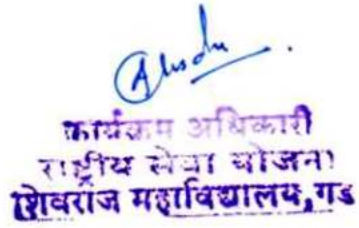 कार्यक्रम अधिकारी
राष्ट्रीय सेवा योजना
शिवराज महाविद्यालय,गड